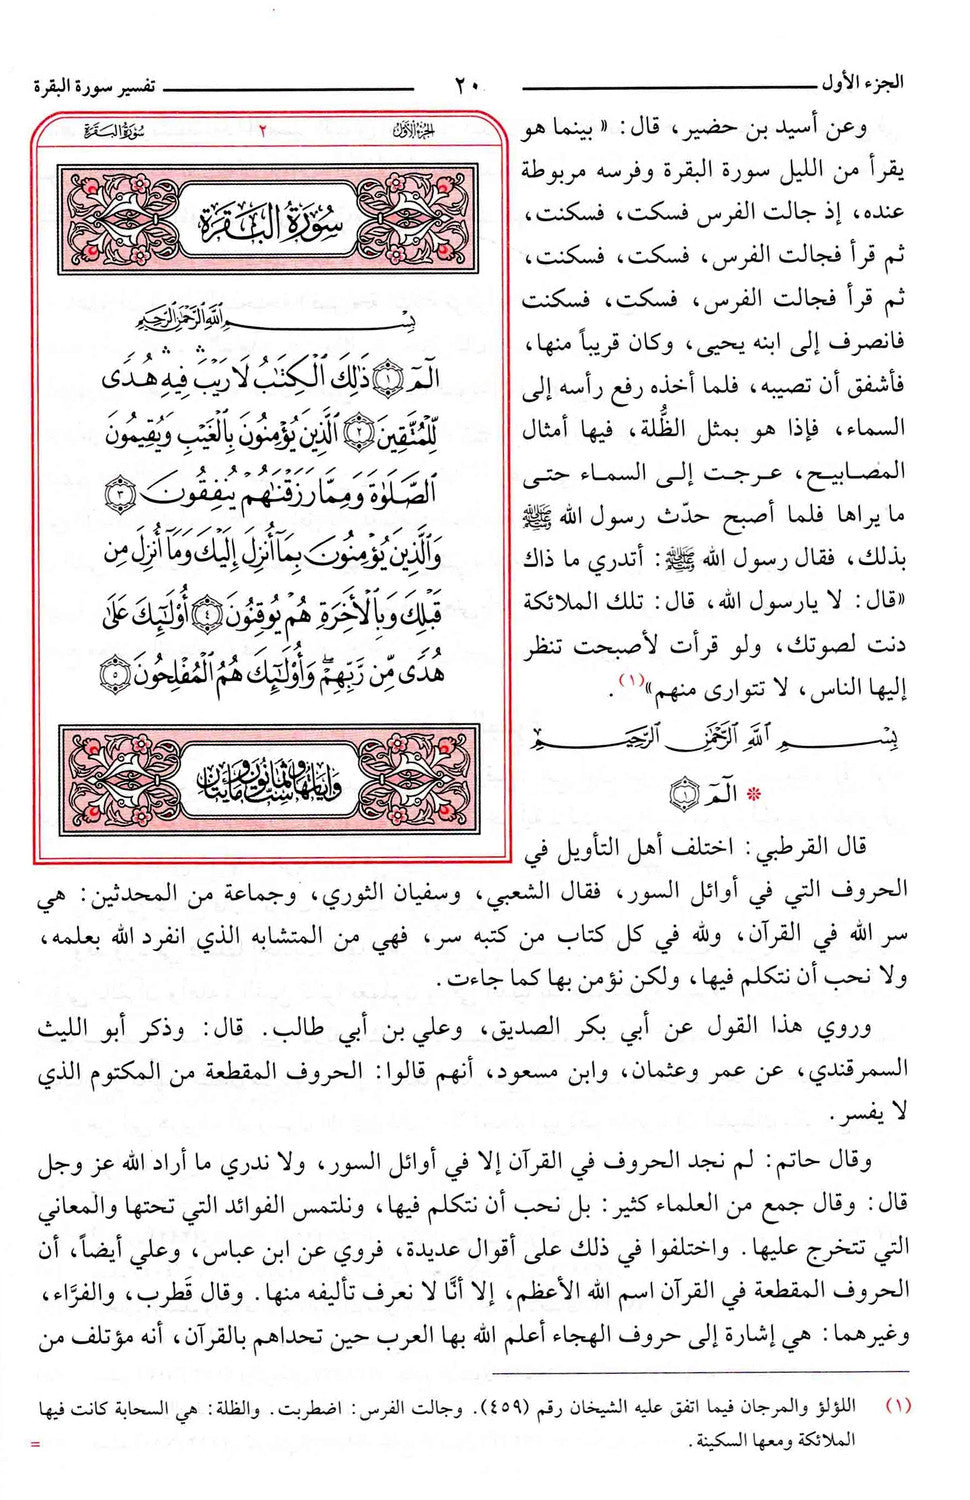 الجزء الأول ٢٠ تفسير سورة البقرة
وعن أسيد بن حضير، قال: «بينما هو
يقرأ من الليل سورة البقرة وفرسه مربوطة
عنده، إذ جالت الفرس فسكت، فسكنت،
ثم قرأ فجالت الفرس، فسكت، فسكنت،
ثم قرأ فجالت الفرس، فسكت، فسكنت
فانصرف إلى ابنه يحيى، وكان قريباً منها،
فأشفق أن تصيبه، فلما أخذه رفع رأسه إلى
السماء، فإذا هو بمثل الظُّلة، فيها أمثال
المصابيح، عرجت إلى السماء حتى
ما يراها فلما أصبح حدّث رسول الله ﷺ
بذلك، فقال رسول الله ﷺ: أتدري ما ذاك
«قال: لا يارسول الله، قال: تلك الملائكة
دنت لصوتك، ولو قرأت لأصبحت تنظر
إليها الناس، لا تتوارى منهم»(١).
بِسْمِ اللَّهِ الرَّحْمَٰنِ الرَّحِيمِ
* الٓمٓ ١
قال القرطبي: اختلف أهل التأويل في
الجزء الأول ٢ سورة البقرة
سُورَةُ البَقَرَةِ
بِسْمِ اللَّهِ الرَّحْمَٰنِ الرَّحِيمِ
الٓمٓ ١ ذَٰلِكَ ٱلْكِتَٰبُ لَا رَيْبَ ۛ فِيهِ ۛ هُدًى
لِّلْمُتَّقِينَ ٢ ٱلَّذِينَ يُؤْمِنُونَ بِٱلْغَيْبِ وَيُقِيمُونَ
ٱلصَّلَوٰةَ وَمِمَّا رَزَقْنَٰهُمْ يُنفِقُونَ ٣
وَٱلَّذِينَ يُؤْمِنُونَ بِمَآ أُنزِلَ إِلَيْكَ وَمَآ أُنزِلَ مِن
قَبْلِكَ وَبِٱلْأَخِرَةِ هُمْ يُوقِنُونَ ٤ أُو۟لَٰٓئِكَ عَلَىٰ
هُدًى مِّن رَّبِّهِمْ ۖ وَأُو۟لَٰٓئِكَ هُمُ ٱلْمُفْلِحُونَ ٥
وآياتها ست وثمانون ومايتان
الحروف التي في أوائل السور، فقال الشعبي، وسفيان الثوري، وجماعة من المحدثين: هي
سر الله في القرآن، ولله في كل كتاب من كتبه سر، فهي من المتشابه الذي انفرد الله بعلمه،
ولا نحب أن نتكلم فيها، ولكن نؤمن بها كما جاءت.
وروي هذا القول عن أبي بكر الصديق، وعلي بن أبي طالب. قال: وذكر أبو الليث
السمرقندي، عن عمر وعثمان، وابن مسعود، أنهم قالوا: الحروف المقطعة من المكتوم الذي
لا يفسر.
وقال حاتم: لم نجد الحروف في القرآن إلا في أوائل السور، ولا ندري ما أراد الله عز وجل
قال: وقال جمع من العلماء كثير: بل نحب أن نتكلم فيها، ونلتمس الفوائد التي تحتها والمعاني
التي تتخرج عليها. واختلفوا في ذلك على أقوال عديدة، فروي عن ابن عباس، وعلي أيضاً، أن
الحروف المقطعة في القرآن اسم الله الأعظم، إلا أنَّا لا نعرف تأليفه منها. وقال قَطرب، والفرَّاء،
وغيرهما: هي إشارة إلى حروف الهجاء أعلم الله بها العرب حين تحداهم بالقرآن، أنه مؤتلف من
(١) اللؤلؤ والمرجان فيما اتفق عليه الشيخان رقم (٤٥٩). وجالت الفرس: اضطربت. والظلة: هي السحابة كانت فيها
الملائكة ومعها السكينة. =